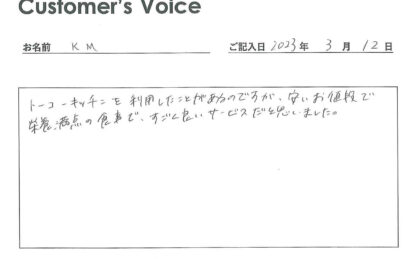 Customer's Voice
お名前 K M ご記入日 2023年 3 月 12 日
トーコーキッチンを利用したことがあるのですが、安いお値段で
栄養満点の食事で、すごく良いサービスだと思いました。